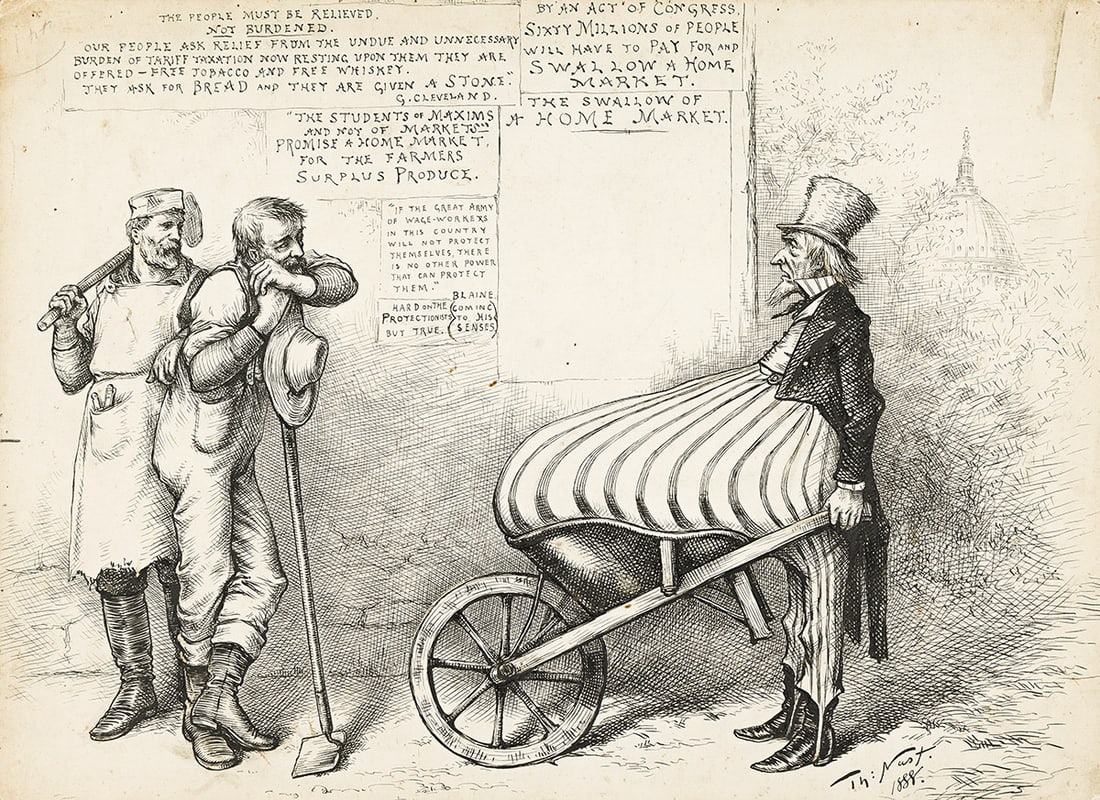 THE PEOPLE MUST BE RELIEVED.
NOT BURDENED.
"OUR PEOPLE ASK RELIEF FROM THE UNDUE AND UNNECESSARY
BURDEN OF TARIFF TAXATION NOW RESTING UPON THEM THEY ARE
OFFERED – FREE TOBACCO AND FREE WHISKEY.
THEY ASK FOR BREAD AND THEY ARE GIVEN A STONE."
G. CLEVELAND.
"THE STUDENTS OF MAXIMS
AND NOT OF MARKETS"
PROMISE A HOME MARKET,
FOR THE FARMERS
SURPLUS PRODUCE.
"IF THE GREAT ARMY
OF WAGE-WORKERS
IN THIS COUNTRY
WILL NOT PROTECT
THEMSELVES, THERE
IS NO OTHER POWER
THAT CAN PROTECT
THEM."
BLAINE
HARD ON THE
PROTECTIONISTS
BUT TRUE.
(COMING
TO HIS
SENSES)
BY AN ACT OF CONGRESS.
SIXTY MILLIONS OF PEOPLE
WILL HAVE TO PAY FOR AND
SWALLOW A HOME
MARKET.
THE SWALLOW OF
A HOME MARKET.
Th: Nast.
1888.